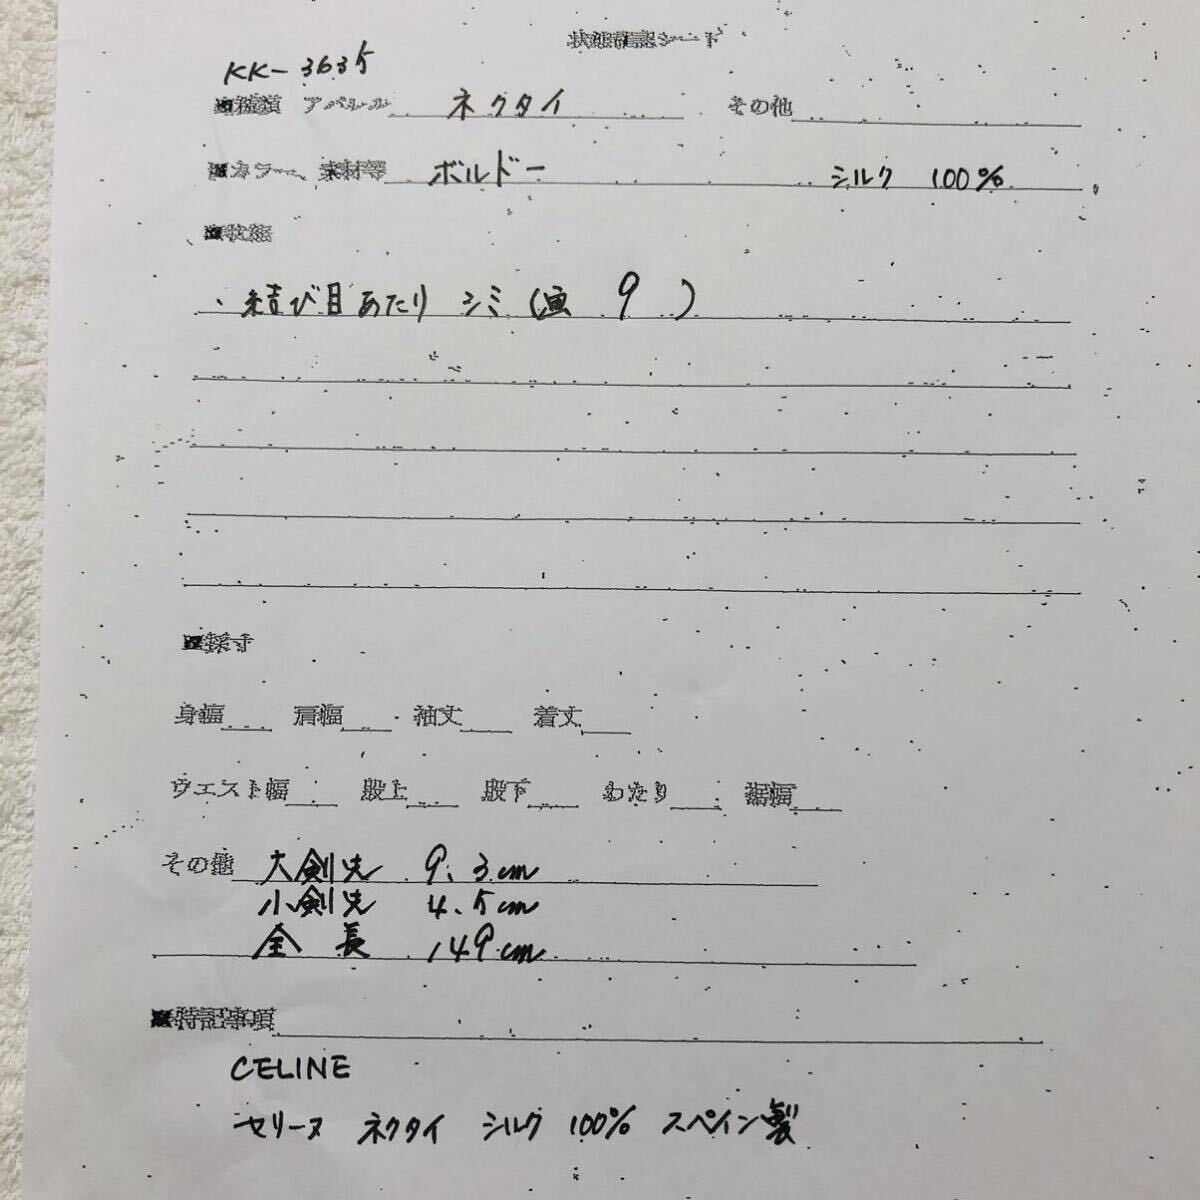 状態確認シート
KK-3635
■種類 アパレル ネクタイ その他
■カラー、素材等 ボルドー シルク 100%
■状態
・結び目あたり シミ(画 9 )
■採寸
身幅 肩幅 袖丈 着丈
ウエスト幅 股上 股下 わたり 裾幅
その他 大剣先 9.3cm
小剣先 4.5cm
全長 149cm
■特記事項
CELINE
セリーヌ ネクタイ シルク 100% スペイン製